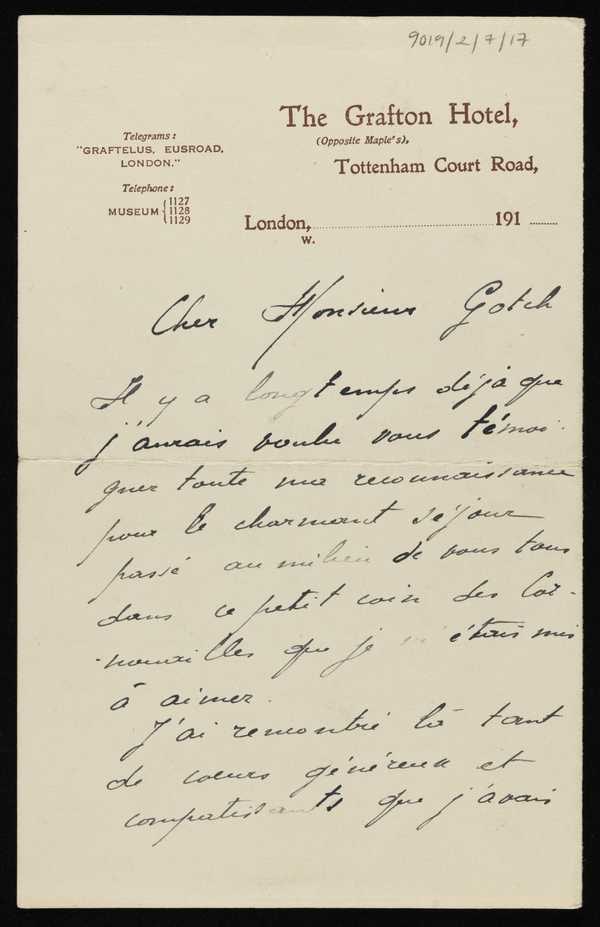 9019/2/7/17
The Grafton Hotel,
(Opposite Maple's),
Tottenham Court Road,
Telegrams:
"GRAFTELUS, EUSROAD,
LONDON."
Telephone:
MUSEUM { 1127
1128
1129
London, 191
W.
Cher Monsieur Gotch
Il y a longtemps déjà que
j'aurais voulu vous témoi-
gner toute ma reconnaissance
pour le charmant séjour
passé au milieu de vous tous
dans ce petit coin des Cor-
-nouailles que je m'étais mis
à aimer.
J'ai rencontré là tant
de coeurs généreux et
compatissants que j'avais